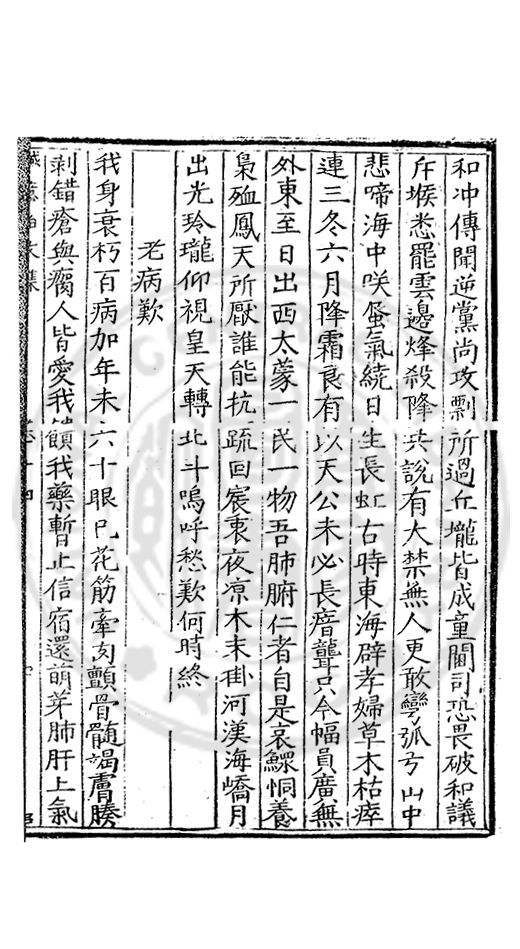 和冲傳聞逆黨尚攻剽所過丘壠皆成童閫司恐畏破和議
斥堠悉罷雲邊烽殺降共說有大禁無人更敢彎弧弓山中
悲啼海中哭蜃氣繞日生長虹古時東海辟孝婦草木枯瘁
連三冬六月降霜良有以天公未必長瘖聾只今幅員廣無
外東至日出西太蒙一民一物吾肺腑仁者自是哀鰥恫養
梟殈鳳天所厭誰能抗疏回宸衷夜凉木末掛河漢海嶠月
出光玲瓏仰視皇天轉北斗嗚呼愁歎何時終
老病歎
我身衰朽百病加年未六十眼已花筋牽肉顫骨髓竭膚腠
剥錯瘡與瘢人皆愛我饋我藥暫止信宿還萌芽肺肝上氣
誠意伯文集